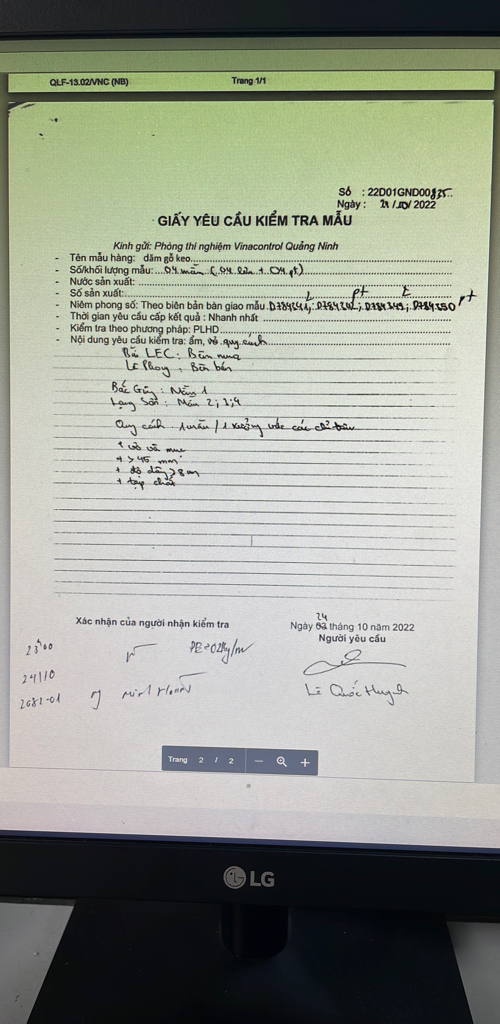 QLF-13.02/VNC (NB) Trang 1/1
Số : 22D01GND00825
Ngày : 24/10/2022
GIẤY YÊU CẦU KIỂM TRA MẪU
Kính gửi: Phòng thí nghiệm Vinacontrol Quảng Ninh
- Tên mẫu hàng: dăm gỗ keo
- Số/khối lượng mẫu: 04 mẫu (04 lưu + 04 pt)
- Nước sản xuất:
- Số sản xuất:
- Niêm phong số: Theo biên bản bàn giao mẫu
- Thời gian yêu cầu cấp kết quả : Nhanh nhất
- Kiểm tra theo phương pháp: PLHD
- Nội dung yêu cầu kiểm tra: ẩm, vỏ, quy cách
LEC: Bên mua
Lê Phong: Bên bán
Bắc Giang: Mẫu 1
Lạng Sơn: Mẫu 2; 3; 4
Quy cách 1 mẫu / 1 xưởng các chỉ tiêu
+ vỏ và mục
+ > 45 mm
+ độ dầy > 8 m
+ tạp chất
Xác nhận của người nhận kiểm tra
Ngày 24 tháng 10 năm 2022
Người yêu cầu
23h00
24/10
2682-01
Lê Quốc Huynh
Trang 2 / 2
LG